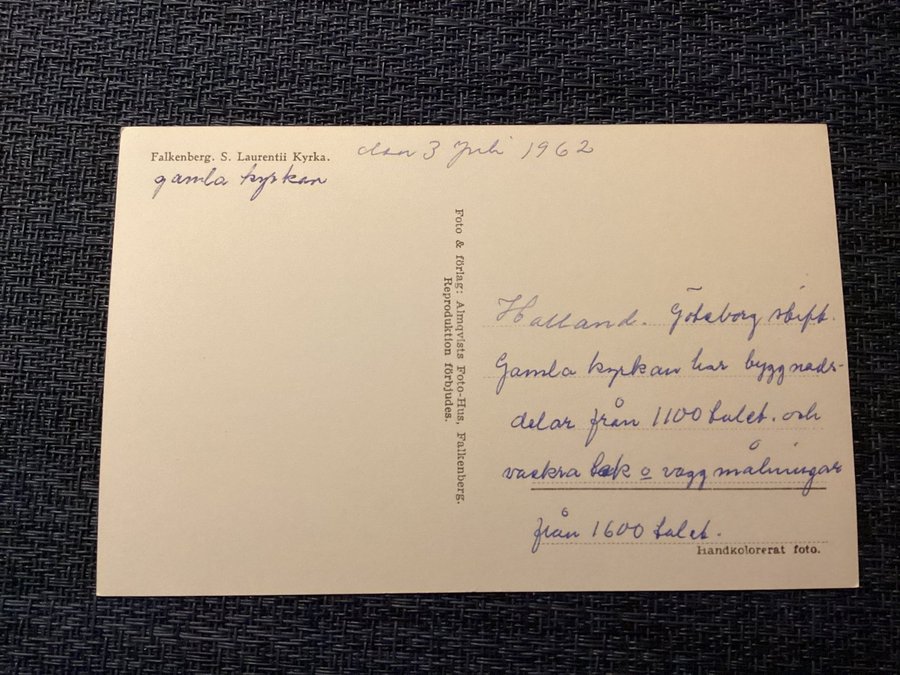 Falkenberg. S. Laurentii Kyrka.
den 3 Juli 1962
gamla kyrkan
Foto & förlag: Almqvists Foto-Hus, Falkenberg.
Reproduktion förbjudes.
Halland. Göteborg stift.
Gamla kyrkan har byggnads-
delar från 1100 talet. och
vackra tak o vägg målningar
från 1600 talet.
Handkolorerat foto.